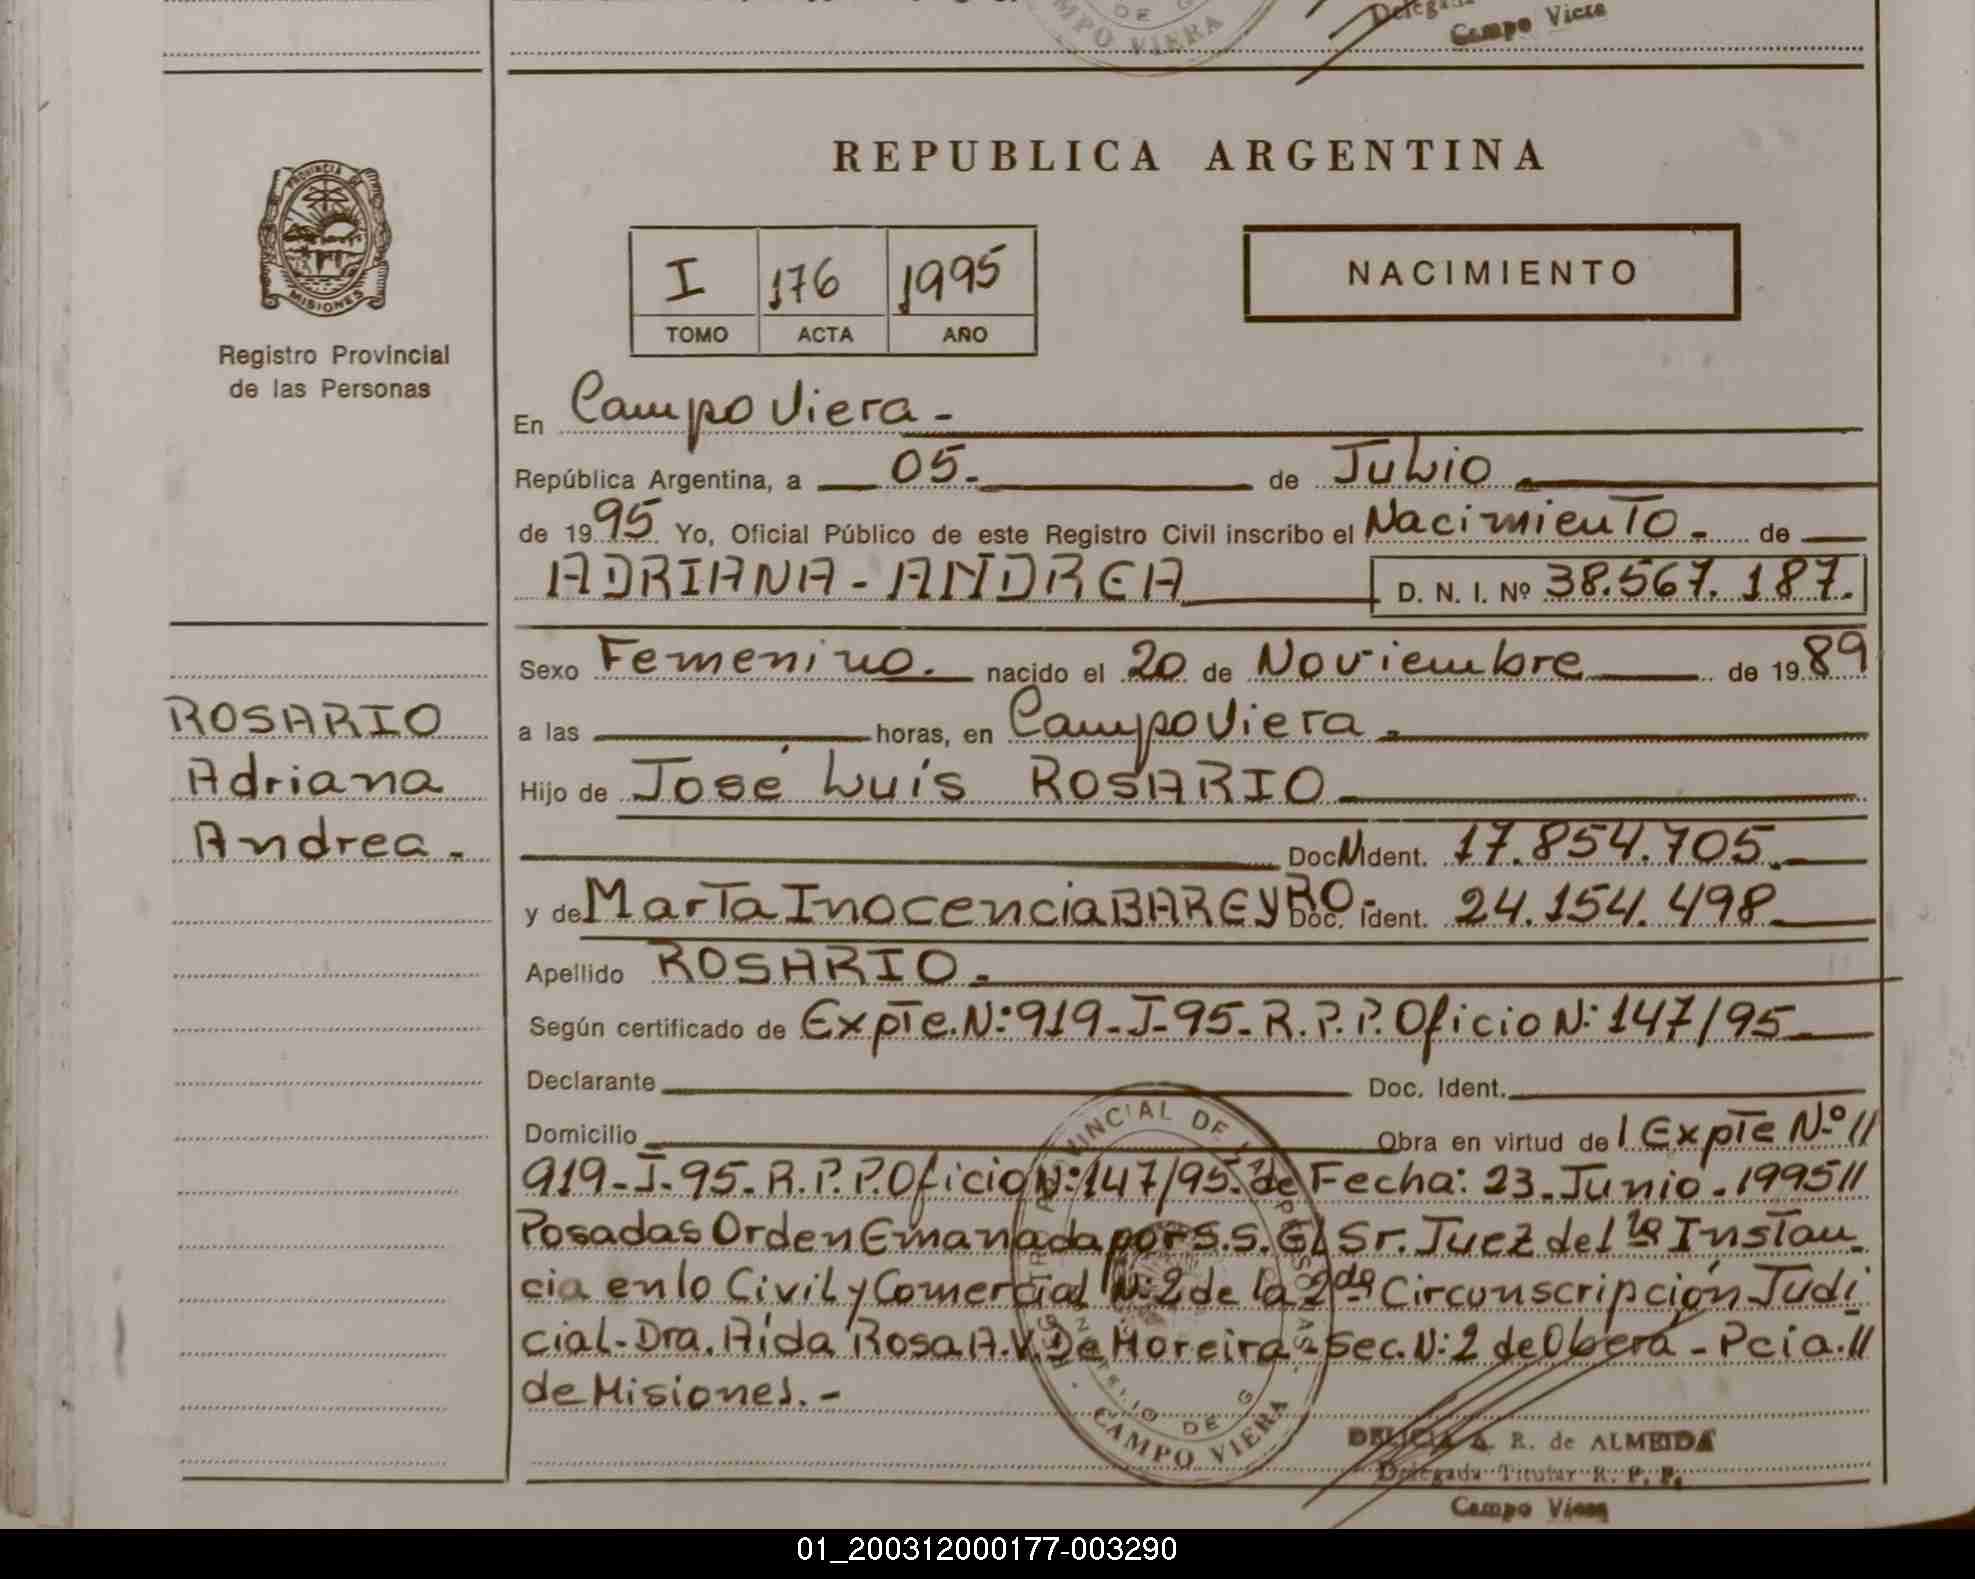 DE
CAMPO VIERA
Campo Viera
REPUBLICA ARGENTINA
PROVINCIA DE
MISIONES
Registro Provincial
de las Personas
I 176 1995
TOMO ACTA AÑO
NACIMIENTO
En Campo Viera -
República Argentina, a 05. de Julio
de 1995 Yo, Oficial Público de este Registro Civil inscribo el Nacimiento. de
ADRIANA - ANDREA D. N. I. Nº 38.567.187.
Sexo Femenino. nacido el 20 de Noviembre de 1989
ROSARIO
Adriana
Andrea.
a las horas, en Campo Viera.
Hijo de José Luís ROSARIO
Doc. Ident. 17.854.705.
y de Marta Inocencia BAREYRO. Doc. Ident. 24.154.498
Apellido ROSARIO.
Según certificado de Expte. N:919-I-95-R.P.P. Oficio N:147/95
Declarante Doc. Ident.
Domicilio Obra en virtud del Expte Nº //
919-I-95-R.P.P. Oficio N:147/95. de Fecha: 23-Junio-1995//
Posadas Orden Emanada por S.S. El Sr. Juez del 1ª Instan
cia en lo Civil y Comercial N:2 de la 2da Circunscripción Judi
cial-Dra. Aida Rosa A.V. De Moreira-Sec. N:2 de Obera-Pcia.//
de Misiones.-
CAMPO VIERA
DELICIA A. R. de ALMEIDA
Delegada Titular R. P. P.
Campo Viera
01_200312000177-003290